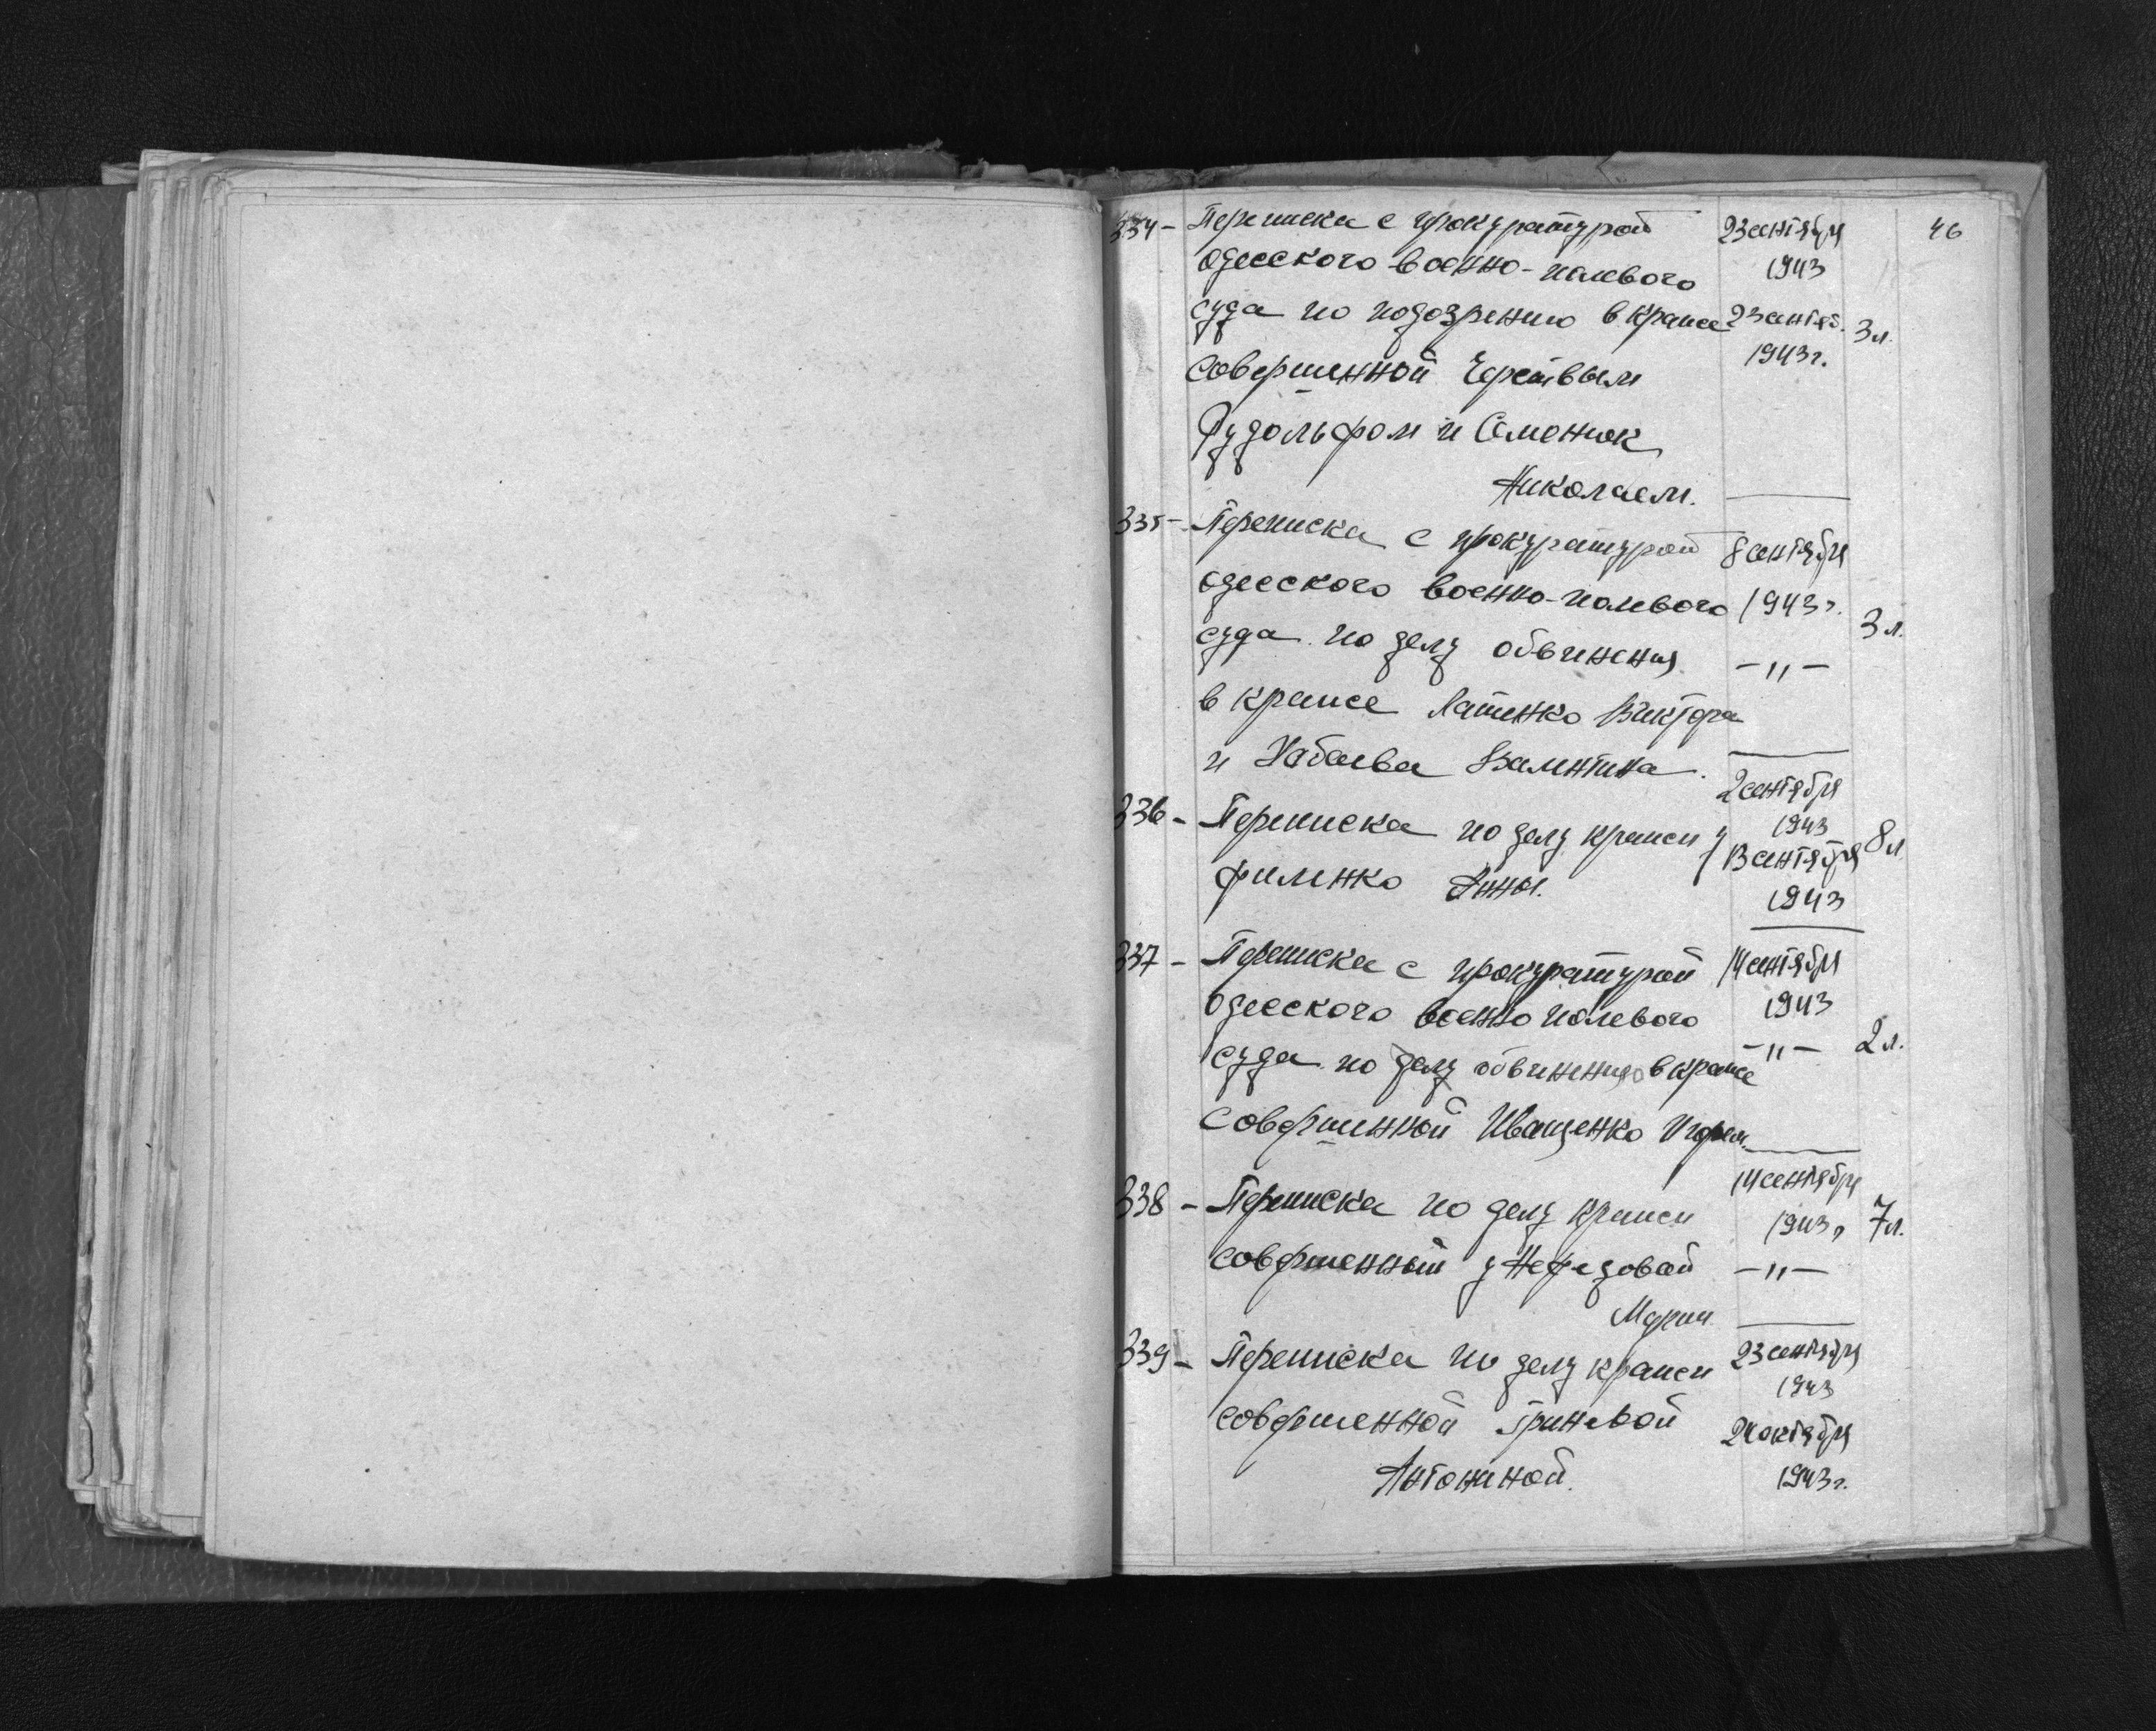 46
334 - Переписка с прокуратурой 23 сентября
одесского военно-полевого 1943
суда по подозрению в краже 23 сентяб. 3 л.
совершенной 1943 г.
Рудольфом и Семенюк
Николаем.
335 - Переписка с прокуратурой 8 сентября
одесского военно-полевого 1943 г.
суда по делу обвинения - " - 3 л.
в краже Латенко Виктора
и Хабаева Валентина.
336 - Переписка по делу кражи у 2 сентября 1943
Филенко Анны. 13 сентября 1943 8 л.
337 - Переписка с прокуратурой 14 сентября
одесского военно полевого 1943
суда по делу обвинения в краже - " - 2 л.
совершенной Иващенко Игорем
338 - Переписка по делу кражи 14 сентября 1943 г. 7 л.
совершенной у Нефедовой - " -
Марии
339 - Переписка по делу кражи 23 сентября 1943
совершенной Гриневой 24 октября
Антониной. 1943 г.